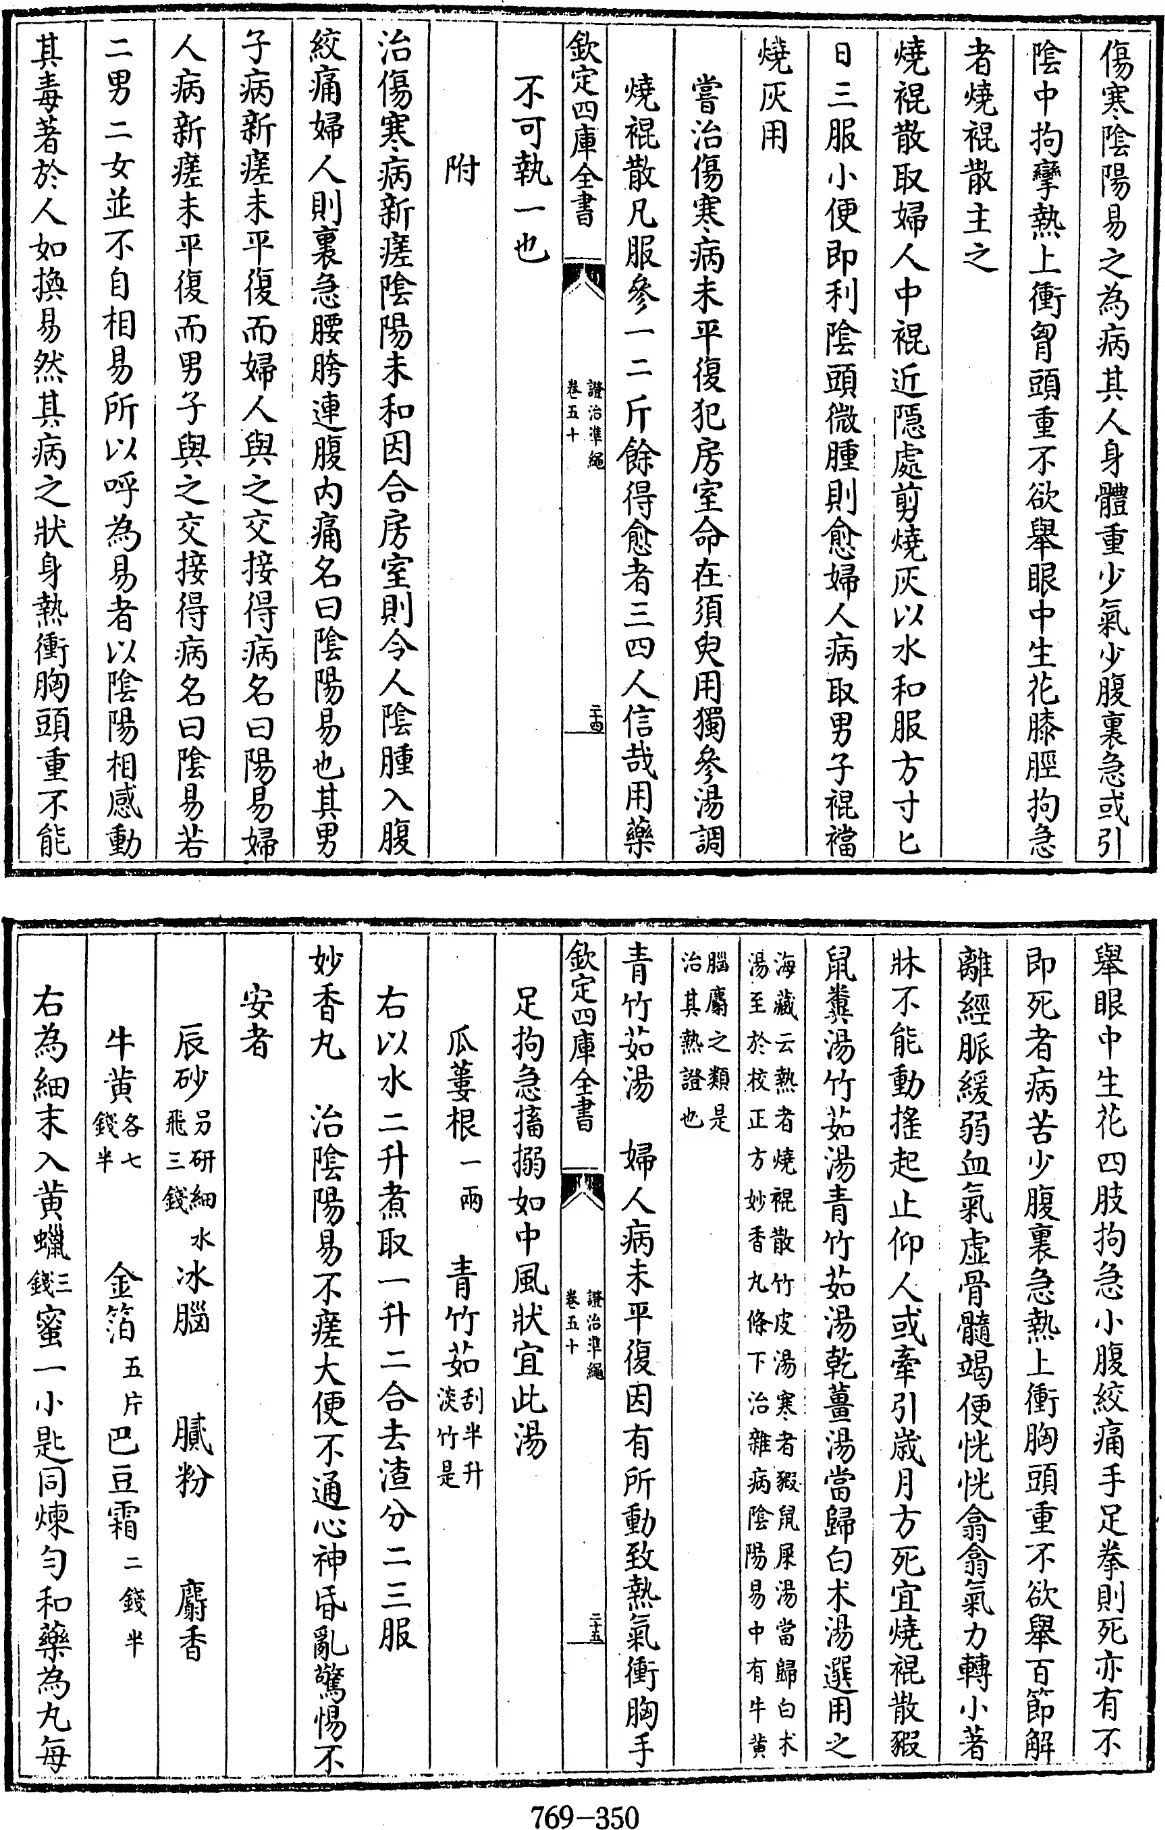 傷寒陰陽易之為病其人身體重少氣少腹裏急或引
陰中拘攣熱上衝胷頭重不欲舉眼中生花膝脛拘急
者燒裩散主之
燒裩散取婦人中裩近隱處剪燒灰以水和服方寸匕
日三服小便即利陰頭微腫則愈婦人病取男子裩襠
燒灰用
嘗治傷寒病未平復犯房室命在須臾用獨參湯調
燒裩散凡服參一二斤餘得愈者三四人信哉用藥
欽定四庫全書
證治準繩
卷五十
二十四
不可執一也
附
治傷寒病新瘥陰陽未和因合房室則令人陰腫入腹
絞痛婦人則裏急腰胯連腹内痛名曰陰陽易也其男
子病新瘥未平復而婦人與之交接得病名曰陽易婦
人病新瘥未平復而男子與之交接得病名曰陰易若
二男二女並不自相易所以呼為易者以陰陽相感動
其毒著於人如換易然其病之狀身熱衝胸頭重不能
舉眼中生花四肢拘急小腹絞痛手足拳則死亦有不
即死者病苦少腹裏急熱上衝胸頭重不欲舉百節解
離經脈緩弱血氣虛骨髓竭便恍恍翕翕氣力轉小著
牀不能動搖起止仰人或牽引歲月方死宜燒裩散豭
鼠糞湯竹茹湯青竹茹湯乾薑湯當歸白术湯選用之
海藏云熱者燒裩散竹皮湯寒者豭鼠屎湯當歸白术
湯至於校正方妙香丸條下治雜病陰陽易中有牛黄
腦麝之類是
治其熱證也
青竹茹湯　婦人病未平復因有所動致熱氣衝胸手
欽定四庫全書
證治準繩
卷五十
二十五
足拘急搐搦如中風狀宜此湯
瓜蔞根一兩　青竹茹刮半升淡竹是
右以水二升煮取一升二合去渣分二三服
妙香丸　治陰陽易不瘥大便不通心神昏亂驚惕不
安者
辰砂另研細水飛三錢　冰腦　膩粉　麝香
牛黄各七錢半　金箔五片　巴豆霜二錢半
右為細末入黄蠟三錢蜜一小匙同煉勻和藥為丸每
769-350